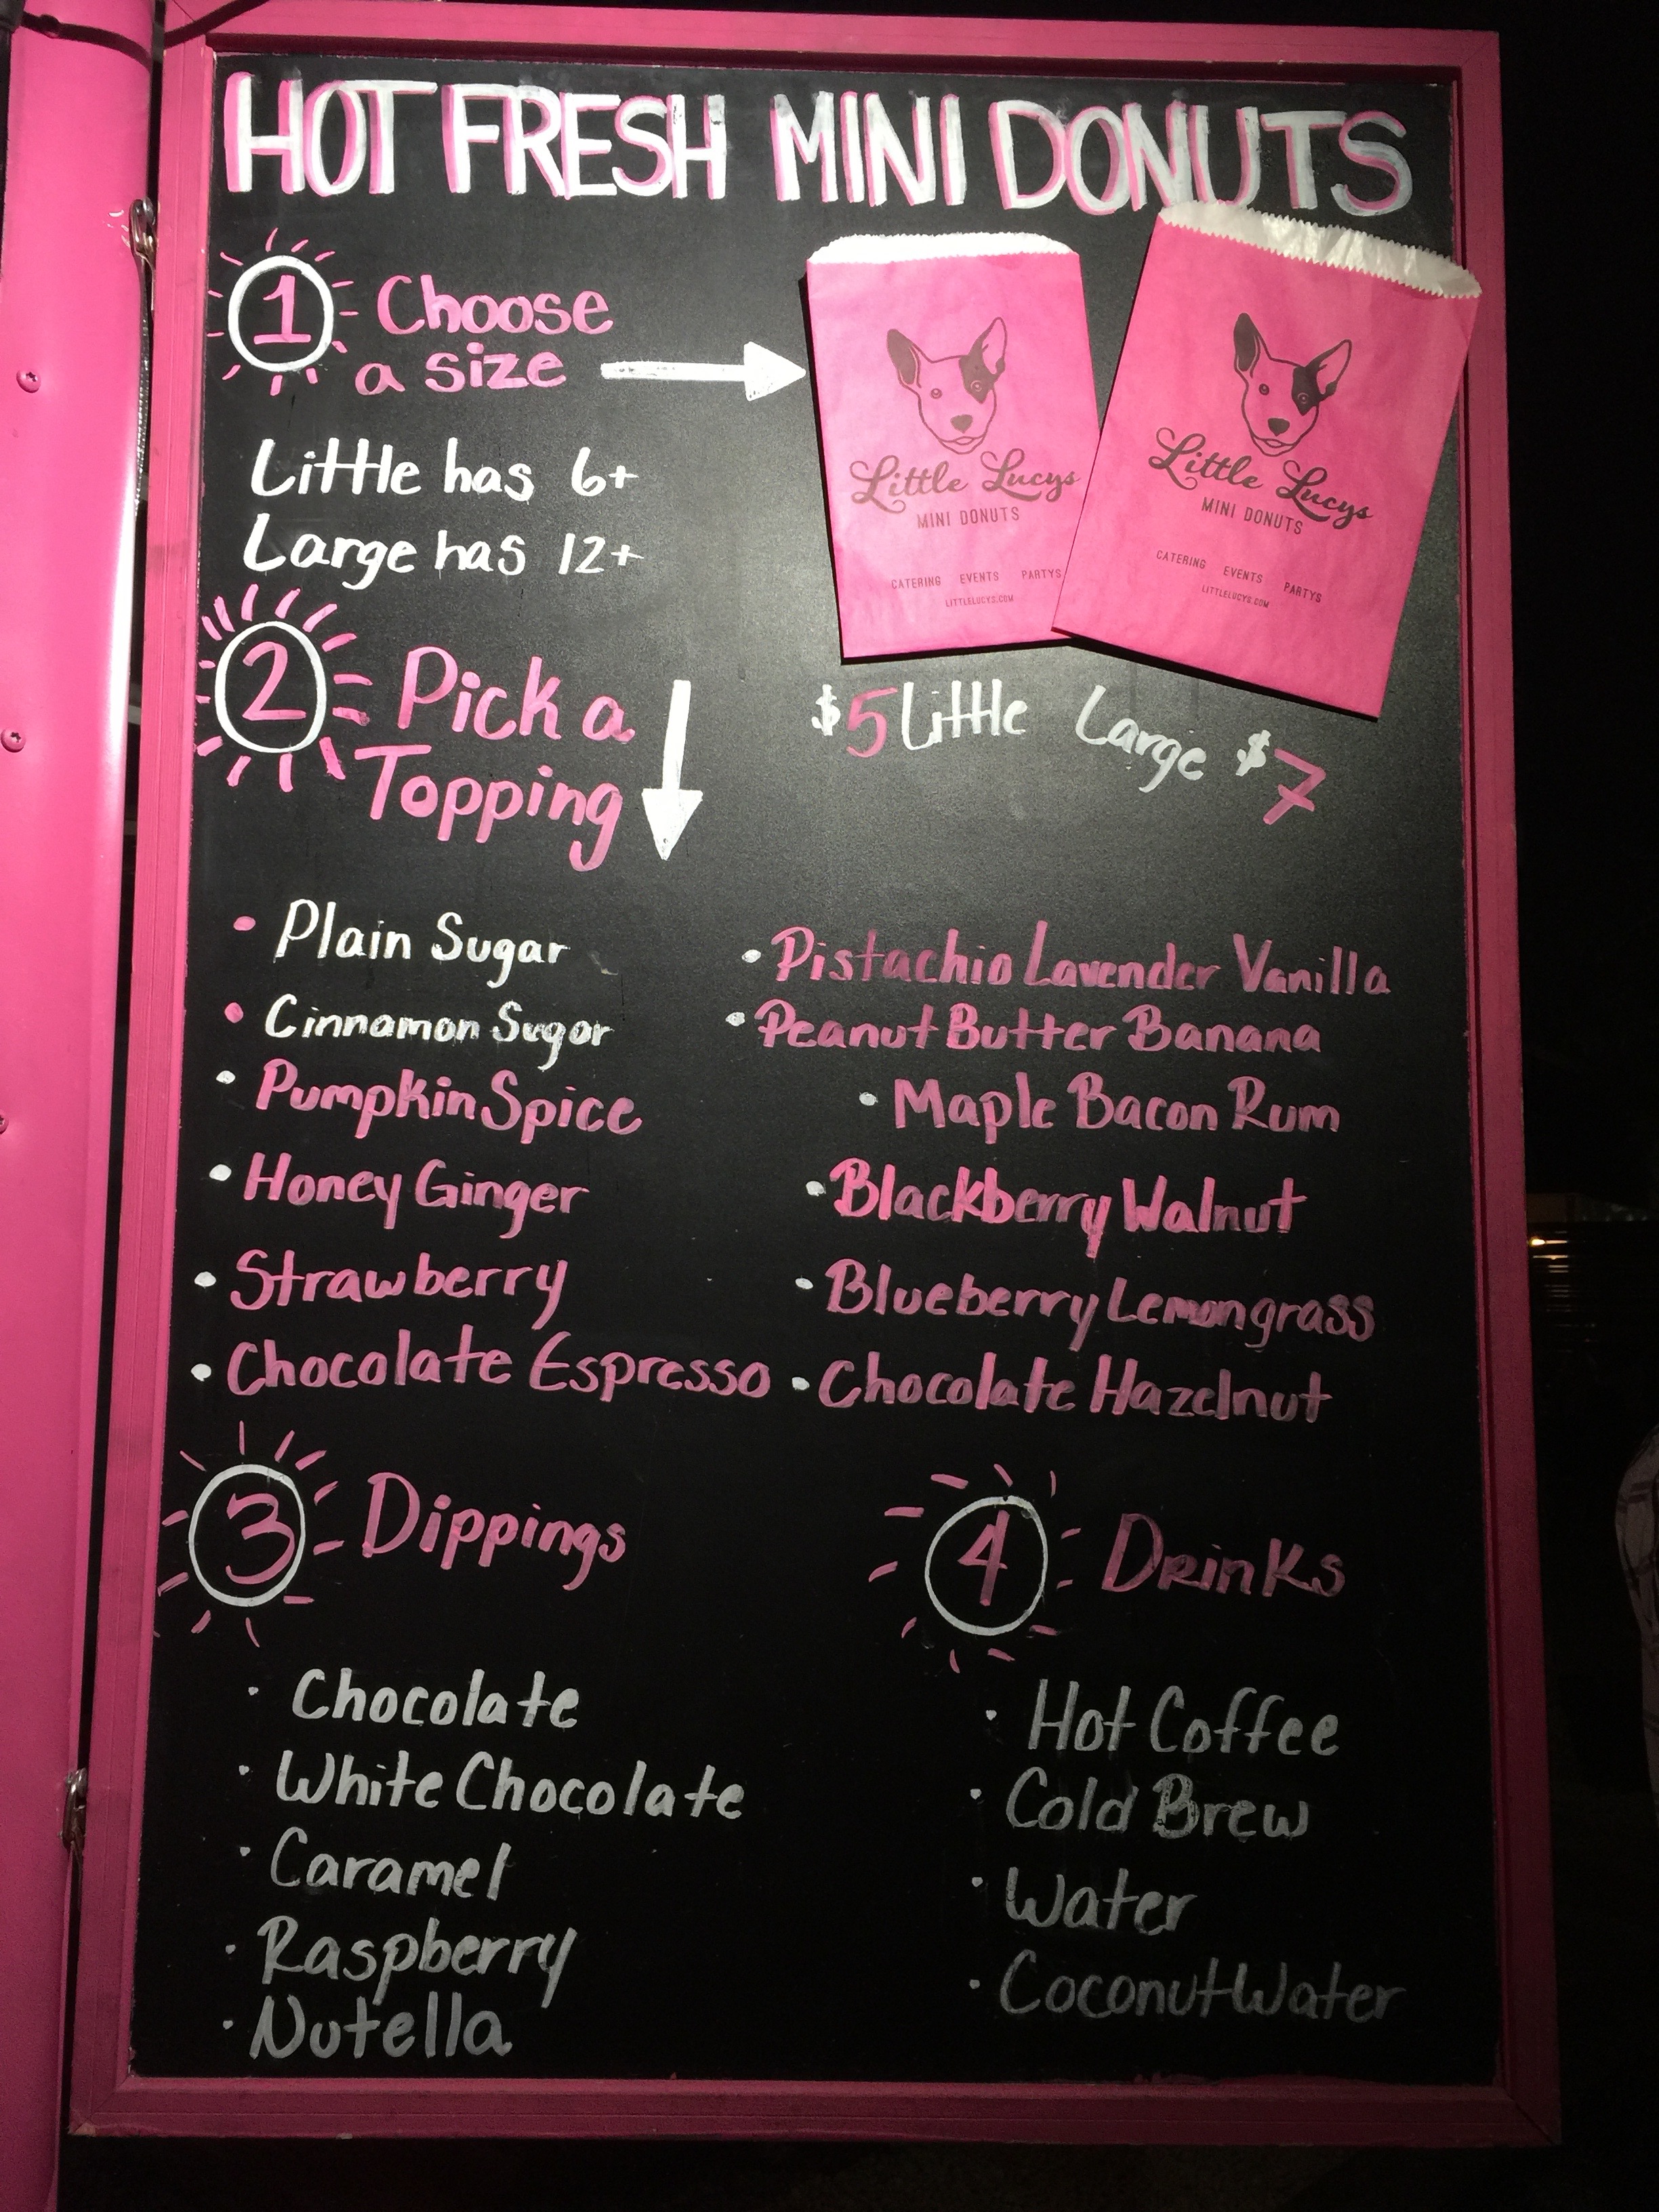 HOT FRESH MINI DONUTS
1 Choose
a size
Little has 6+
Large has 12+
Little Lucys
MINI DONUTS
CATERING EVENTS PARTYS
LITTLELUCYS.COM
Little Lucys
MINI DONUTS
CATERING EVENTS PARTYS
LITTLELUCYS.COM
$5 Little Large $7
2 Pick a
Topping
• Plain Sugar
• Cinnamon Sugar
• Pumpkin Spice
• Honey Ginger
• Strawberry
• Chocolate Espresso
• Pistachio Lavender Vanilla
• Peanut Butter Banana
• Maple Bacon Rum
• Blackberry Walnut
• Blueberry Lemongrass
• Chocolate Hazelnut
3 Dippings
• Chocolate
• White Chocolate
• Caramel
• Raspberry
• Nutella
4 Drinks
• Hot Coffee
• Cold Brew
• Water
• Coconut Water